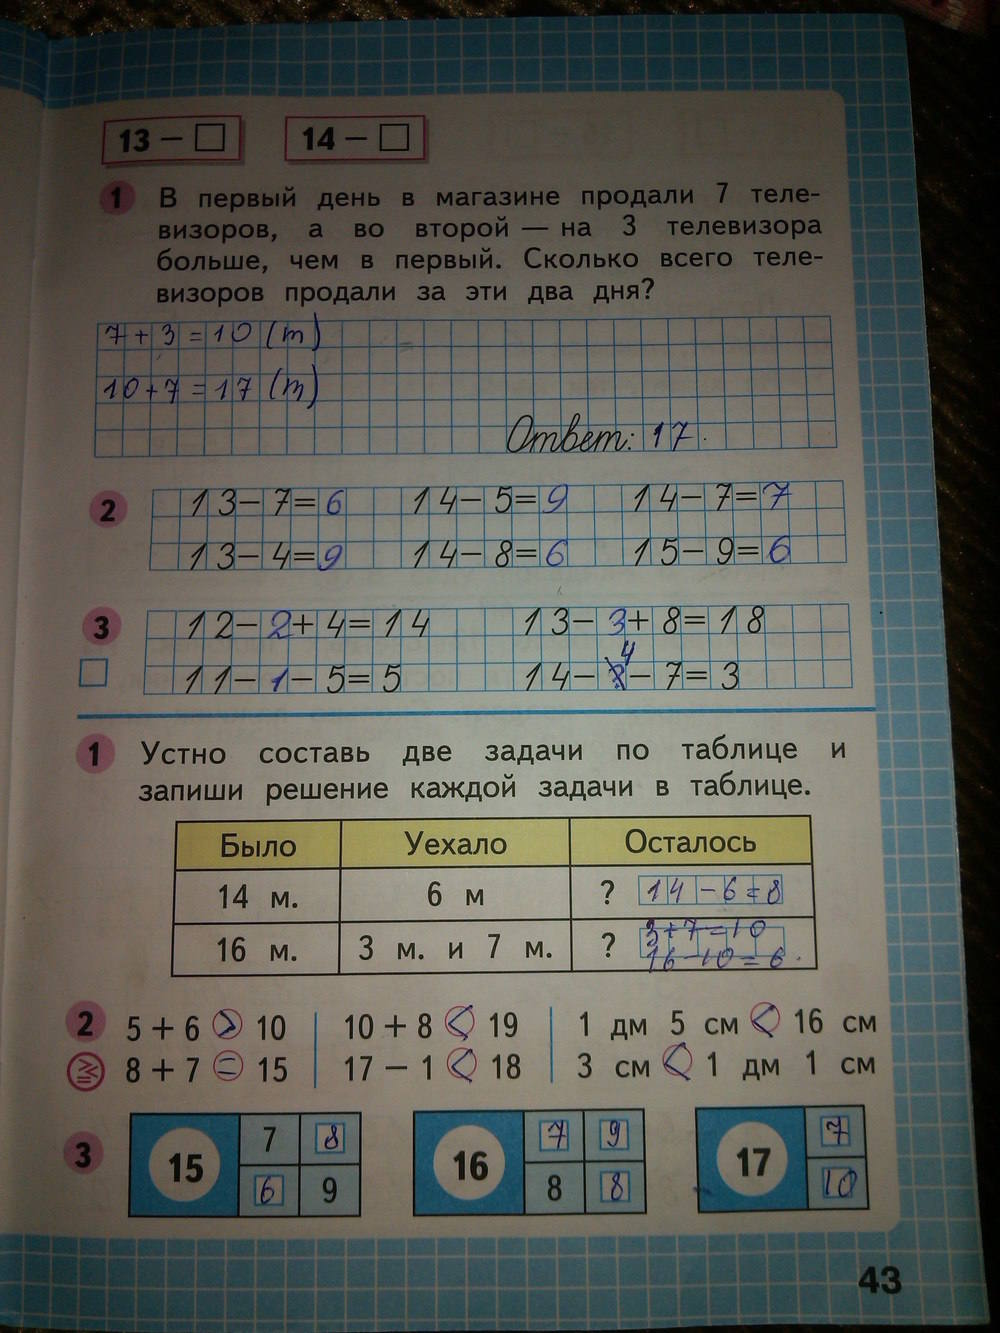 13 – □ 14 – □
1 В первый день в магазине продали 7 теле-
визоров, а во второй — на 3 телевизора
больше, чем в первый. Сколько всего теле-
визоров продали за эти два дня?
7 + 3 = 10 (т)
10 + 7 = 17 (т)
Ответ: 17.
2 13 – 7 = 6 14 – 5 = 9 14 – 7 = 7
13 – 4 = 9 14 – 8 = 6 15 – 9 = 6
3 12 – 2 + 4 = 14 13 – 3 + 8 = 18
11 – 1 – 5 = 5 14 – 4 – 7 = 3
1 Устно составь две задачи по таблице и
запиши решение каждой задачи в таблице.
Было Уехало Осталось
14 м. 6 м ? 14 – 6 = 8
16 м. 3 м. и 7 м. ? 3 + 7 = 10
16 – 10 = 6.
2 5 + 6 > 10 10 + 8 < 19 1 дм 5 см < 16 см
8 + 7 = 15 17 – 1 < 18 3 см < 1 дм 1 см
3 15 7 8 16 7 9 17 7
6 9 8 8 10
43